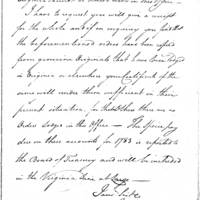 I have to request you will give a receipt
for the whole and if on enquiry you find that
the beforementioned orders have been issued
from genuine Originals that have been lodged
in Virginia or elsewhere your Certificate of the
same will render them sufficient on their
present situation, for that there are no
Orders Lodged in the Office — The Specie pay
due on these accounts for 1783 is reported to
the Board of Treasury and will be included
in the Virginia